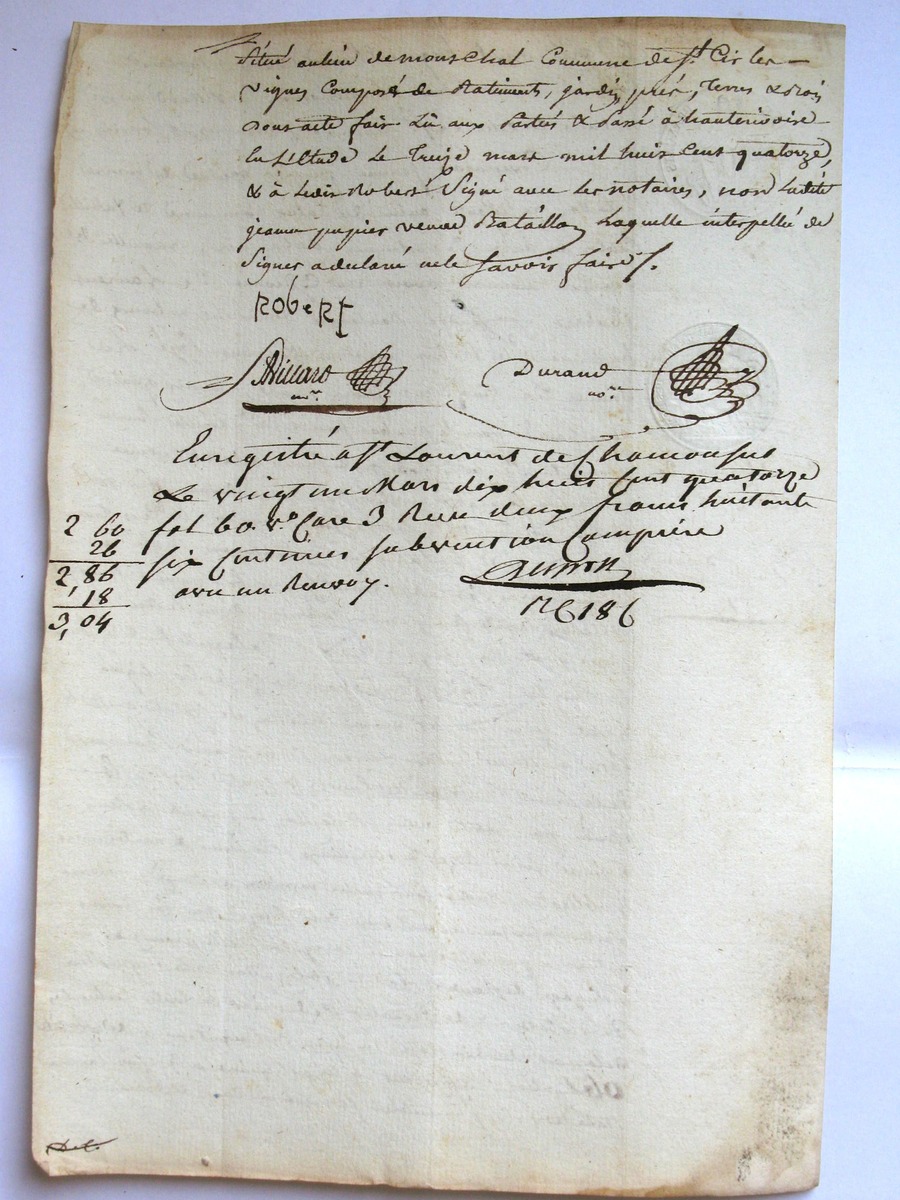 Situé au lieu de mouschal Commune de St. Cir les
vignes Composé de Batiments, jardin, prés, Terres & bois
dont acte fait Lû aux Parties & Passé à hauterivoire
En L'Etude Le Treize mars mil huit Cent quatorze,
& à Ledit Robert Signé avec Les notaires, non Ladite
jeanne pupier veuve Bataillon Laquelle interpellée de
Signer a déclaré ne le Savoir faire /.
RobeRt
Villard
nore.
Durand
nore.
Enregistré a St Laurent de Chamousset
Le vingt un Mars dix huit Cent quatorze
fol 60 vo Case 3 Recu deux francs huitante
six Centimes subvention Comprise
avec un Renvoy.
2 60
26
2,86
18
3,04